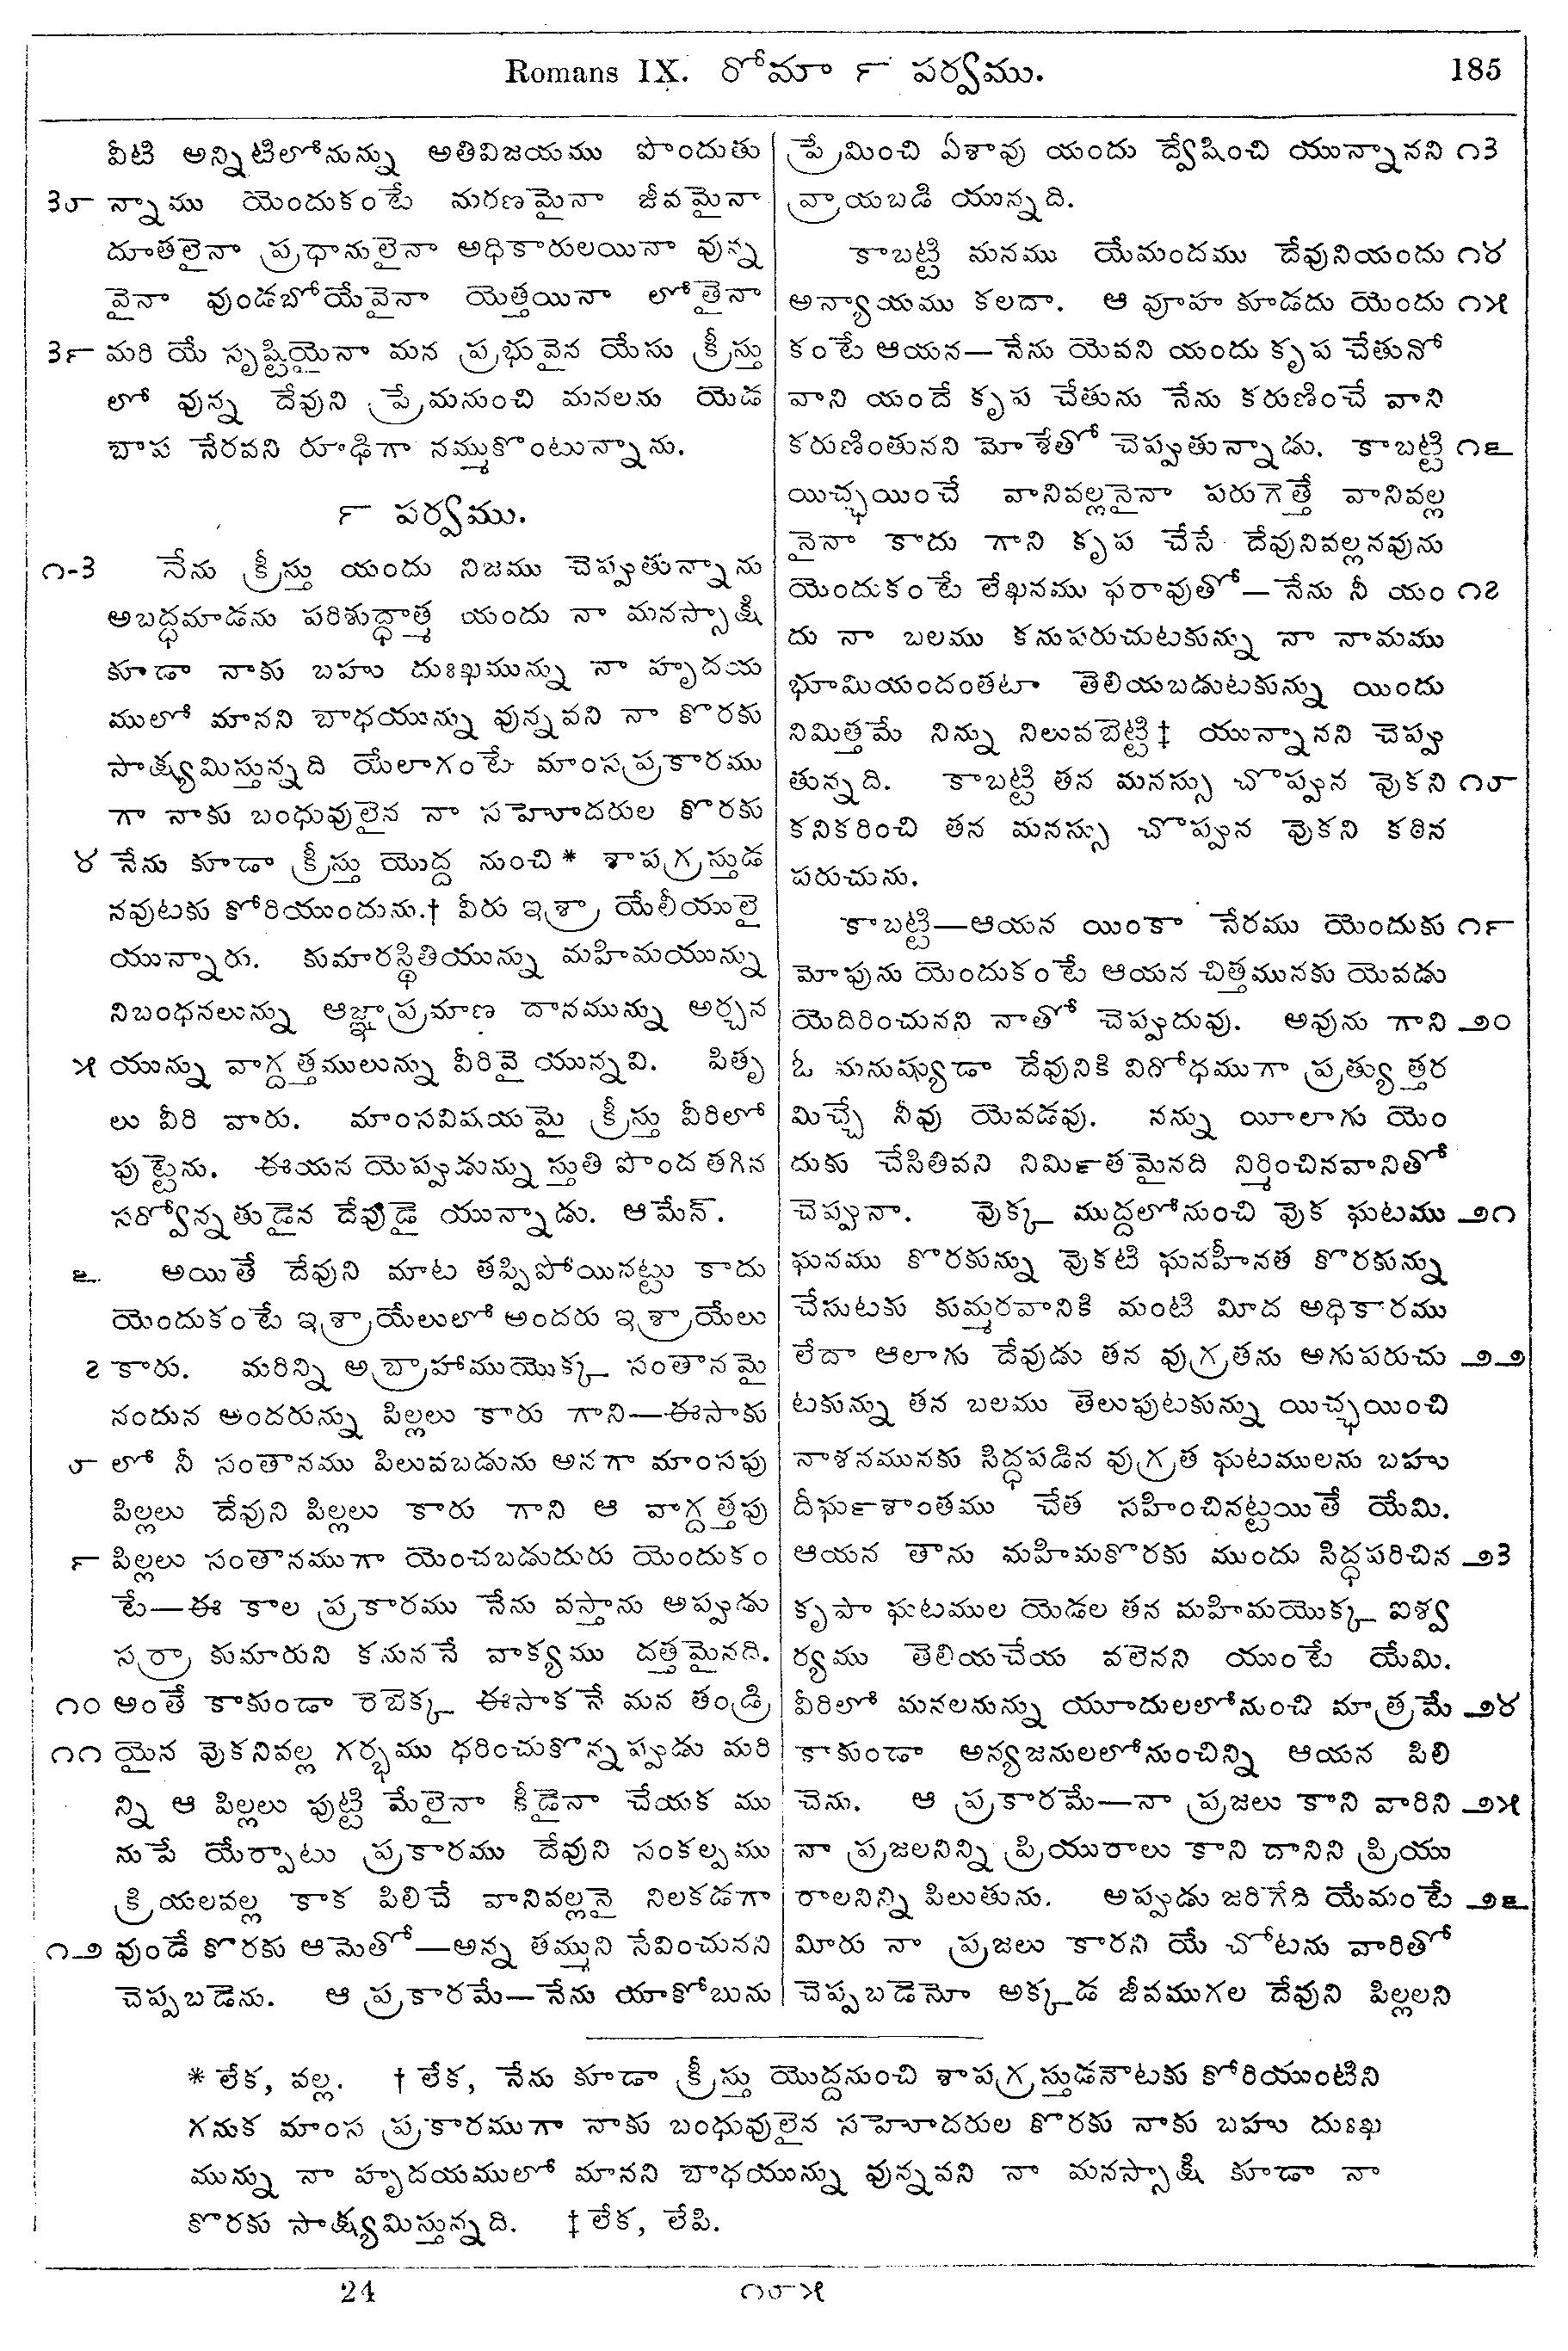 Romans IX. రోమా ౯ పర్వము. 185
వీటి అన్నిటిలోనున్ను అతివిజయము పొందుతు
౩౮ న్నాము యెందుకంటే మరణమైనా జీవమైనా
దూతలైనా ప్రధానులైనా అధికారులయినా వున్న
వైనా వుండబోయేవైనా యెత్తయినా లోతైనా
౩౯ మరి యే సృష్టియైనా మన ప్రభువైన యేసు క్రీస్తు
లో వున్న దేవుని ప్రేమనుంచి మనలను యెడ
బాప నేరవని రూఢిగా నమ్ముకొంటున్నాను.
౯ పర్వము.
౧-౩ నేను క్రీస్తు యందు నిజము చెప్పుతున్నాను
అబద్ధమాడను పరిశుద్ధాత్మ యందు నా మనస్సాక్షి
కూడా నాకు బహు దుఃఖమున్ను నా హృదయ
ములో మానని బాధయున్ను వున్నవని నా కొరకు
సాక్ష్యమిస్తున్నది యేలాగంటే మాంసప్రకారము
గా నాకు బంధువులైన నా సహెూదరుల కొరకు
౪ నేను కూడా క్రీస్తు యొద్ద నుంచి* శాపగ్రస్తుడ
నవుటకు కోరియుందును.† వీరు ఇశ్రాయేలీయులై
యున్నారు. కుమారస్థితియున్ను మహిమయున్ను
నిబంధనలున్ను ఆజ్ఞాప్రమాణ దానమున్ను అర్చన
౫ యున్ను వాగ్దత్తములున్ను వీరివై యున్నవి. పితృ
లు వీరి వారు. మాంసవిషయమై క్రీస్తు వీరిలో
పుట్టెను. ఈయన యెప్పుడున్ను స్తుతి పొంద తగిన
సర్వోన్నతుడైన దేవుడై యున్నాడు. ఆమేన్.
౬ అయితే దేవుని మాట తప్పిపోయినట్టు కాదు
యెందుకంటే ఇశ్రాయేలులో అందరు ఇశ్రాయేలు
౭ కారు. మరిన్ని అబ్రాహాముయొక్క సంతానమై
నందున అందరున్ను పిల్లలు కారు గాని—ఈసాకు
౮ లో నీ సంతానము పిలువబడును అనగా మాంసపు
పిల్లలు దేవుని పిల్లలు కారు గాని ఆ వాగ్దత్తపు
౯ పిల్లలు సంతానముగా యెంచబడుదురు యెందుకం
టే—ఈ కాల ప్రకారము నేను వస్తాను అప్పుడు
సర్రా కుమారుని కనుననే వాక్యము దత్తమైనది.
౧౦ అంతే కాకుండా రెబెక్క ఈసాకనే మన తండ్రి
౧౧ యైన వుకనివల్ల గర్భము ధరించుకొన్నప్పుడు మరి
న్ని ఆ పిల్లలు పుట్టి మేలైనా కీడైనా చేయక ము
నుపే యేర్పాటు ప్రకారము దేవుని సంకల్పము
క్రియలవల్ల కాక పిలిచే వానివల్లనై నిలకడగా
౧౨ వుండే కొరకు ఆమెతో—అన్న తమ్ముని సేవించునని
చెప్పబడెను. ఆ ప్రకారమే—నేను యాకోబును
ప్రేమించి ఏశావు యందు ద్వేషించి యున్నానని ౧౩
వ్రాయబడి యున్నది.
కాబట్టి మనము యేమందము దేవునియందు ౧౪
అన్యాయము కలదా. ఆ వూహ కూడదు యెందు ౧౫
కంటే ఆయన—నేను యెవని యందు కృప చేతునో
వాని యందే కృప చేతును నేను కరుణించే వాని
కరుణింతునని మోశేతో చెప్పుతున్నాడు. కాబట్టి ౧౬
యిచ్ఛయించే వానివల్లనైనా పరుగెత్తే వానివల్ల
నైనా కాదు గాని కృప చేసే దేవునివల్లనవును
యెందుకంటే లేఖనము ఫరావుతో—నేను నీ యం ౧౭
దు నా బలము కనుపరుచుటకున్ను నా నామము
భూమియందంతటా తెలియబడుటకున్ను యిందు
నిమిత్తమే నిన్ను నిలువబెట్టి‡ యున్నానని చెప్పు
తున్నది. కాబట్టి తన మనస్సు చొప్పున వుకని ౧౮
కనికరించి తన మనస్సు చొప్పున వుకని కఠిన
పరుచును.
కాబట్టి—ఆయన యింకా నేరము యెందుకు ౧౯
మోపును యెందుకంటే ఆయన చిత్తమునకు యెవడు
యెదిరించునని నాతో చెప్పుదువు. అవును గాని ౨౦
ఓ మనుష్యుడా దేవునికి విరోధముగా ప్రత్యుత్తర
మిచ్చే నీవు యెవడవు. నన్ను యీలాగు యెం
దుకు చేసితివని నిమి౯తమైనది నిర్మించినవానితో
చెప్పునా. వుక్క ముద్దలోనుంచి వుక ఘటము ౨౧
ఘనము కొరకున్ను వుకటి ఘనహీనత కొరకున్ను
చేసుటకు కుమ్మరవానికి మంటి మీద అధికారము
లేదా ఆలాగు దేవుడు తన వుగ్రతను అగుపరుచు ౨౨
టకున్ను తన బలము తెలుపుటకున్ను యిచ్ఛయించి
నాశనమునకు సిద్ధపడిన వుగ్రత ఘటములను బహు
దీఘ౯శాంతము చేత సహించినట్టయితే యేమి.
ఆయన తాను మహిమకొరకు ముందు సిద్ధపరిచిన ౨౩
కృపా ఘటముల యెడల తన మహిమయొక్క ఐశ్వ
ర్యము తెలియచేయ వలెనని యుంటే యేమి.
వీరిలో మనలనున్ను యూదులలోనుంచి మాత్రమే ౨౪
కాకుండా అన్యజనులలోనుంచిన్ని ఆయన పిలి
చెను. ఆ ప్రకారమే—నా ప్రజలు కాని వారిని ౨౫
నా ప్రజలనిన్ని ప్రియురాలు కాని దానిని ప్రియు
రాలనిన్ని పిలుతును. అప్పుడు జరిగేది యేమంటే ౨౬
మీరు నా ప్రజలు కారని యే చోటను వారితో
చెప్పబడెనో అక్కడ జీవముగల దేవుని పిల్లలని
* లేక, వల్ల. † లేక, నేను కూడా క్రీస్తు యొద్దనుంచి శాపగ్రస్తుడనౌటకు కోరియుంటిని
గనుక మాంస ప్రకారముగా నాకు బంధువులైన సహెూదరుల కొరకు నాకు బహు దుఃఖ
మున్ను నా హృదయములో మానని బాధయున్ను వున్నవని నా మనస్సాక్షి కూడా నా
కొరకు సాక్ష్యమిస్తున్నది. ‡ లేక, లేపి.
24 ౧౮౫